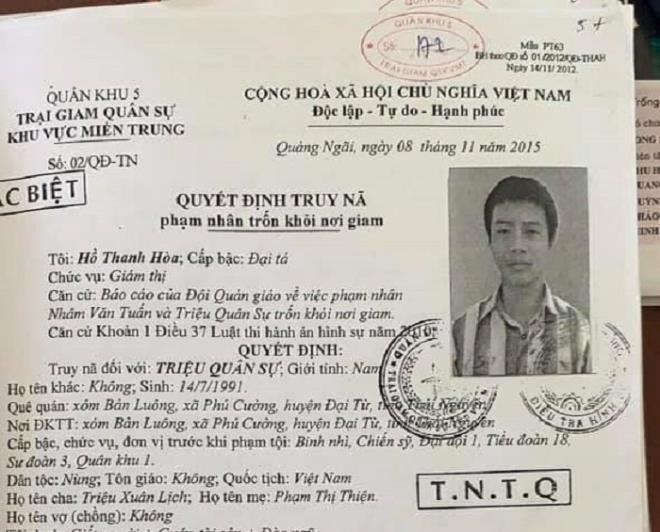 QUÂN KHU 5
Số: 172
TRẠI GIAM QSKVMT
5+
Mẫu PT63
BH theo QĐ số 01/2012/QĐ-THAH
Ngày 14/11/2012.
QUÂN KHU 5
TRẠI GIAM QUÂN SỰ
KHU VỰC MIỀN TRUNG
Số: 02/QĐ-TN
CỘNG HOÀ XÃ HỘI CHỦ NGHĨA VIỆT NAM
Độc lập - Tự do - Hạnh phúc
Quảng Ngãi, ngày 08 tháng 11 năm 2015
ẶC BIỆT
QUYẾT ĐỊNH TRUY NÃ
phạm nhân trốn khỏi nơi giam
Tôi: Hồ Thanh Hòa; Cấp bậc: Đại tá
Chức vụ: Giám thị
Căn cứ: Báo cáo của Đội Quản giáo về việc phạm nhân
Nhâm Văn Tuấn và Triệu Quân Sự trốn khỏi nơi giam.
Căn cứ Khoản 1 Điều 37 Luật thi hành án hình sự năm
QUYẾT ĐỊNH:
Truy nã đối với: TRIỆU QUÂN SỰ; Giới tính: Nam
Họ tên khác: Không; Sinh: 14/7/1991.
Quê quán: xóm Bản Luông, xã Phú Cường, huyện Đại Từ, Nguyên
Nơi ĐKTT: xóm Bản Luông, xã Phú Cường, huyện Đại Từ, Nguyên
Cấp bậc, chức vụ, đơn vị trước khi phạm tội: Binh nhì, Chiến sỹ, Đại đội 1, Tiểu đoàn 18,
Sư đoàn 3, Quân khu 1.
Dân tộc: Nùng; Tôn giáo: Không; Quốc tịch: Việt Nam
Họ tên cha: Triệu Xuân Lịch; Họ tên mẹ: Phạm Thị Thiện.
Họ tên vợ (chồng): Không
ĐIỀU TRA HÌNH
T.N.T.Q